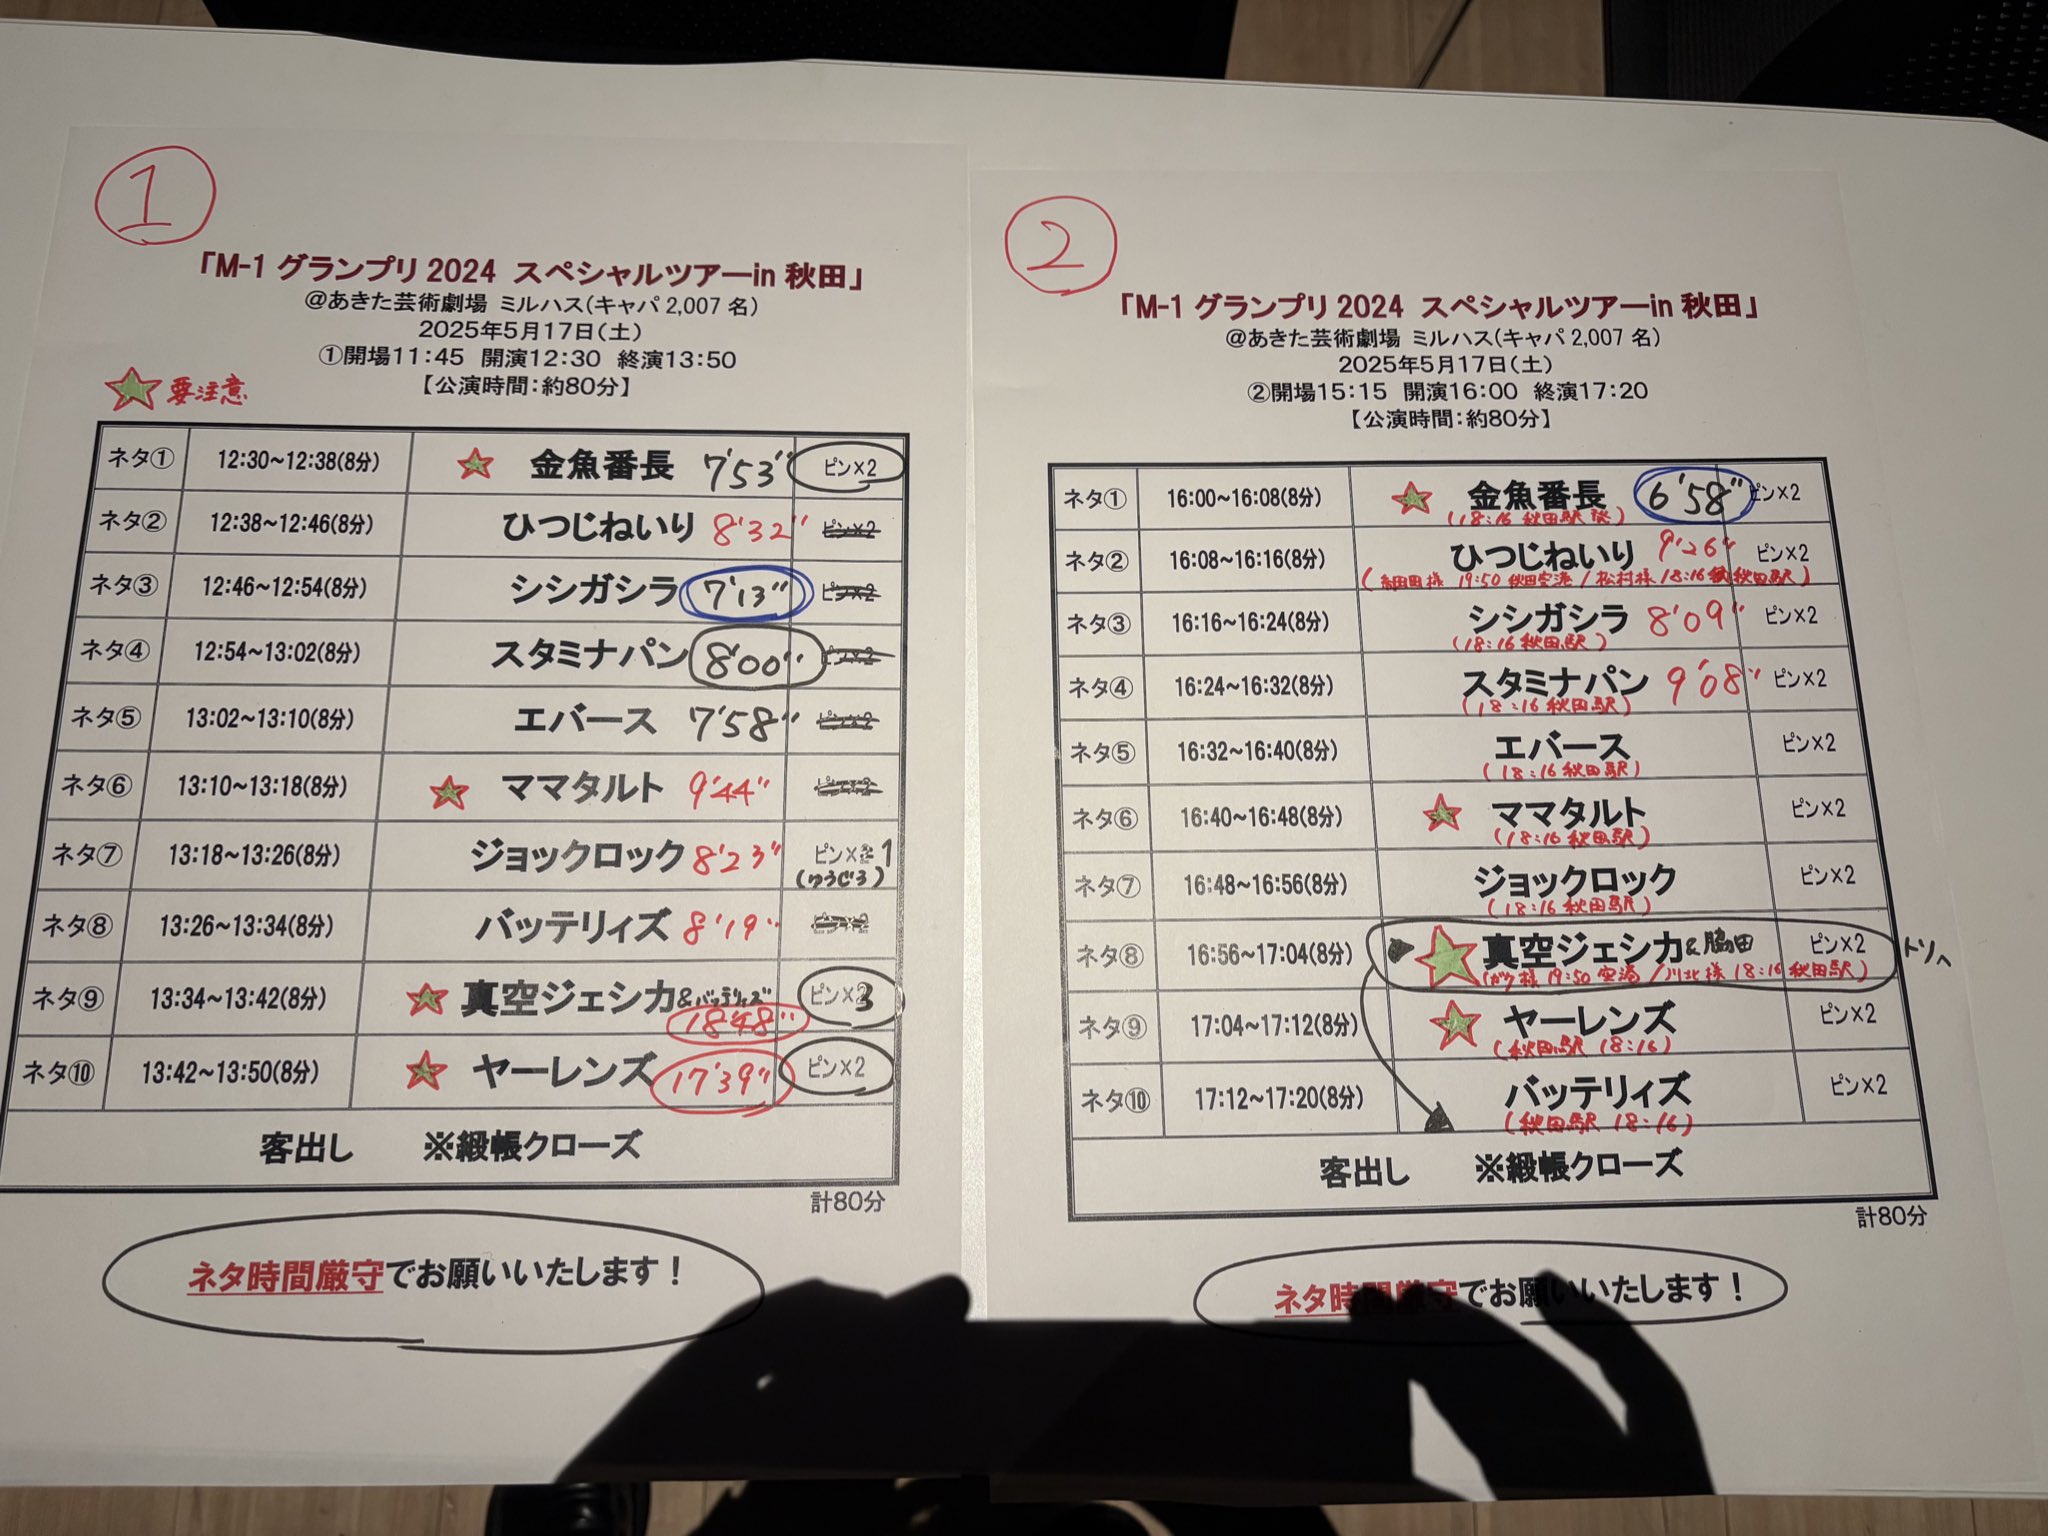 ①
「M-1 グランプリ 2024 スペシャルツアーin 秋田」
@あきた芸術劇場 ミルハス(キャパ 2,007 名)
2025年5月17日(土)
①開場11:45 開演12:30 終演13:50
【公演時間:約80分】
要注意
ネタ① 12:30~12:38(8分) 金魚番長 7'53" ピン×2
ネタ② 12:38~12:46(8分) ひつじねいり 8'32" ピン×2
ネタ③ 12:46~12:54(8分) シシガシラ 7'13" ピン×2
ネタ④ 12:54~13:02(8分) スタミナパン 8'00" ピン×2
ネタ⑤ 13:02~13:10(8分) エバース 7'58" ピン×2
ネタ⑥ 13:10~13:18(8分) ママタルト 9'44" ピン×2
ネタ⑦ 13:18~13:26(8分) ジョックロック 8'23" ピン×2 1
(ゆうじろ)
ネタ⑧ 13:26~13:34(8分) バッテリィズ 8'19" ピン×2
ネタ⑨ 13:34~13:42(8分) 真空ジェシカ &バッテリィズ ピン×3
18'48"
ネタ⑩ 13:42~13:50(8分) ヤーレンズ 17'39" ピン×2
客出し ※緞帳クローズ
計80分
ネタ時間厳守でお願いいたします!
②
「M-1 グランプリ 2024 スペシャルツアーin 秋田」
@あきた芸術劇場 ミルハス(キャパ 2,007 名)
2025年5月17日(土)
②開場15:15 開演16:00 終演17:20
【公演時間:約80分】
ネタ① 16:00~16:08(8分) 金魚番長 6'58" ピン×2
(18:16 秋田駅 発)
ネタ② 16:08~16:16(8分) ひつじねいり 9'26" ピン×2
(細田様 19:50 秋田空港 / 松村様 18:16 秋田駅)
ネタ③ 16:16~16:24(8分) シシガシラ 8'09" ピン×2
(18:16 秋田駅)
ネタ④ 16:24~16:32(8分) スタミナパン 9'08" ピン×2
(18:16 秋田駅)
ネタ⑤ 16:32~16:40(8分) エバース ピン×2
(18:16 秋田駅)
ネタ⑥ 16:40~16:48(8分) ママタルト ピン×2
(18:16 秋田駅)
ネタ⑦ 16:48~16:56(8分) ジョックロック ピン×2
(18:16 秋田駅)
ネタ⑧ 16:56~17:04(8分) 真空ジェシカ &脇田 ピン×2 トリへ
(ガク様 19:50 空港 / 川北様 18:16 秋田駅)
ネタ⑨ 17:04~17:12(8分) ヤーレンズ ピン×2
(秋田駅 18:16)
ネタ⑩ 17:12~17:20(8分) バッテリィズ ピン×2
(秋田駅 18:16)
客出し ※緞帳クローズ
計80分
ネタ時間厳守でお願いいたします!